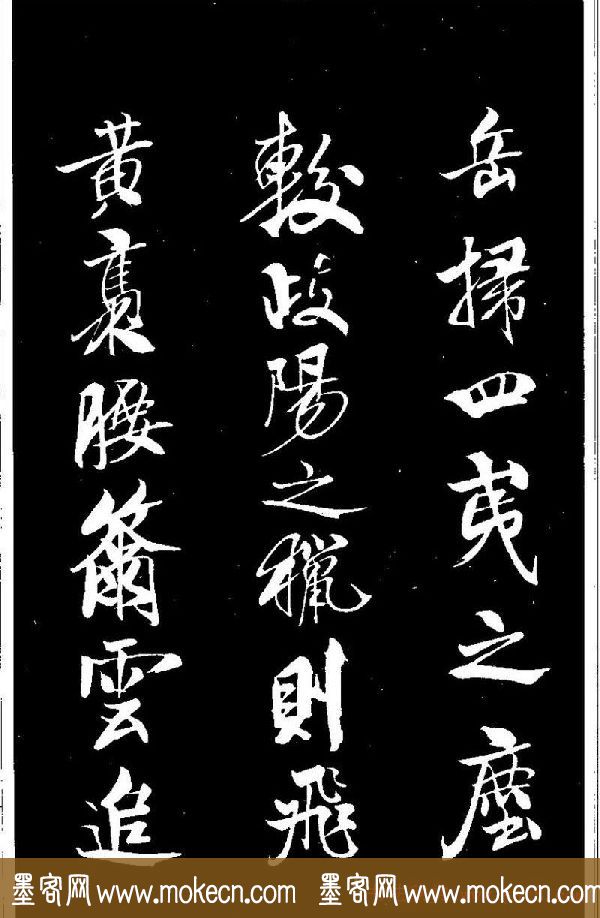 岳掃四夷之塵
較歧陽之獵則飛
黄褭腰籋雲追
墨客网 www.mokecn.com 墨客网 www.mokecn.com